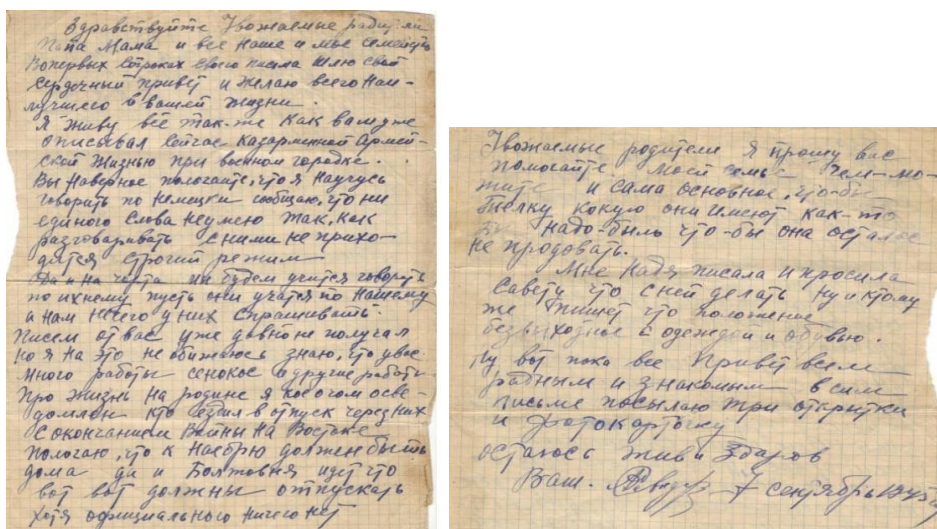 Здравствуйте Уважаемые родители
Папа Мама и все наше и мое семейство
Вопервых строках своего писма шлю свой
сердочный привет и желаю всего наи-
лучшего в вашей жизни.
Я живу всё так-же как вам уже
описывал сейчас казарменной Армей-
ской жизнью при военном городке.
Вы наверное пологаите, что я научусь
говорить по немецки сообщаю, что ни
единого слова неумею так, как
разговаривать с ними не прихо-
дится строгий режим
Да и на черта мы будем учится говорить
по ихнему пусть они учатся по нашему
а нам нечего у них спрашивать.
Писем от вас уже давно не получал
но я на это не обижаюсь знаю, что у вас
много работы сенокос и другие работы
Про жизнь на родине я кое о чом осве-
домлен кто ездил в отпуск через них
С окончанием Войны на Востоке
пологаю, что к Ноябрю должен быть
дома да и Болтовня идут что
вот вот должны отпускать
хотя официального ничего нет
Уважаемые родители Я прошу вас
пологайте моей семье чем-мо-
жите и сама основное, что-бы
телку кокую они имеют как-то
надо-было что-бы она осталас
не продовать.
Мне Надя писала и просила
Савету что с ней делать ну и ктому
же пишет что положение
безвыходное с одеждой и обувью.
Ну вот пока все Привет всем
родным и знакомым в сим
письме посылаю три открытки
и фотокарточку
остаюсь жив и здаров
Ваш. 7 сентябрь 1945